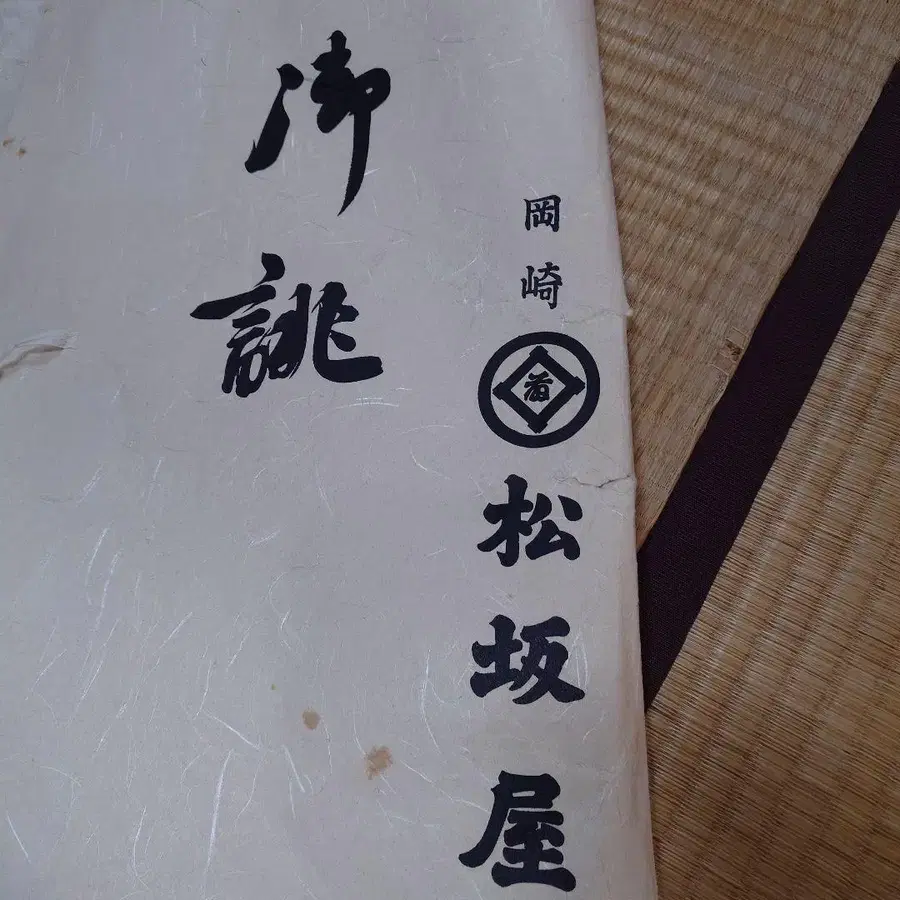 岡崎
松坂屋
御誂